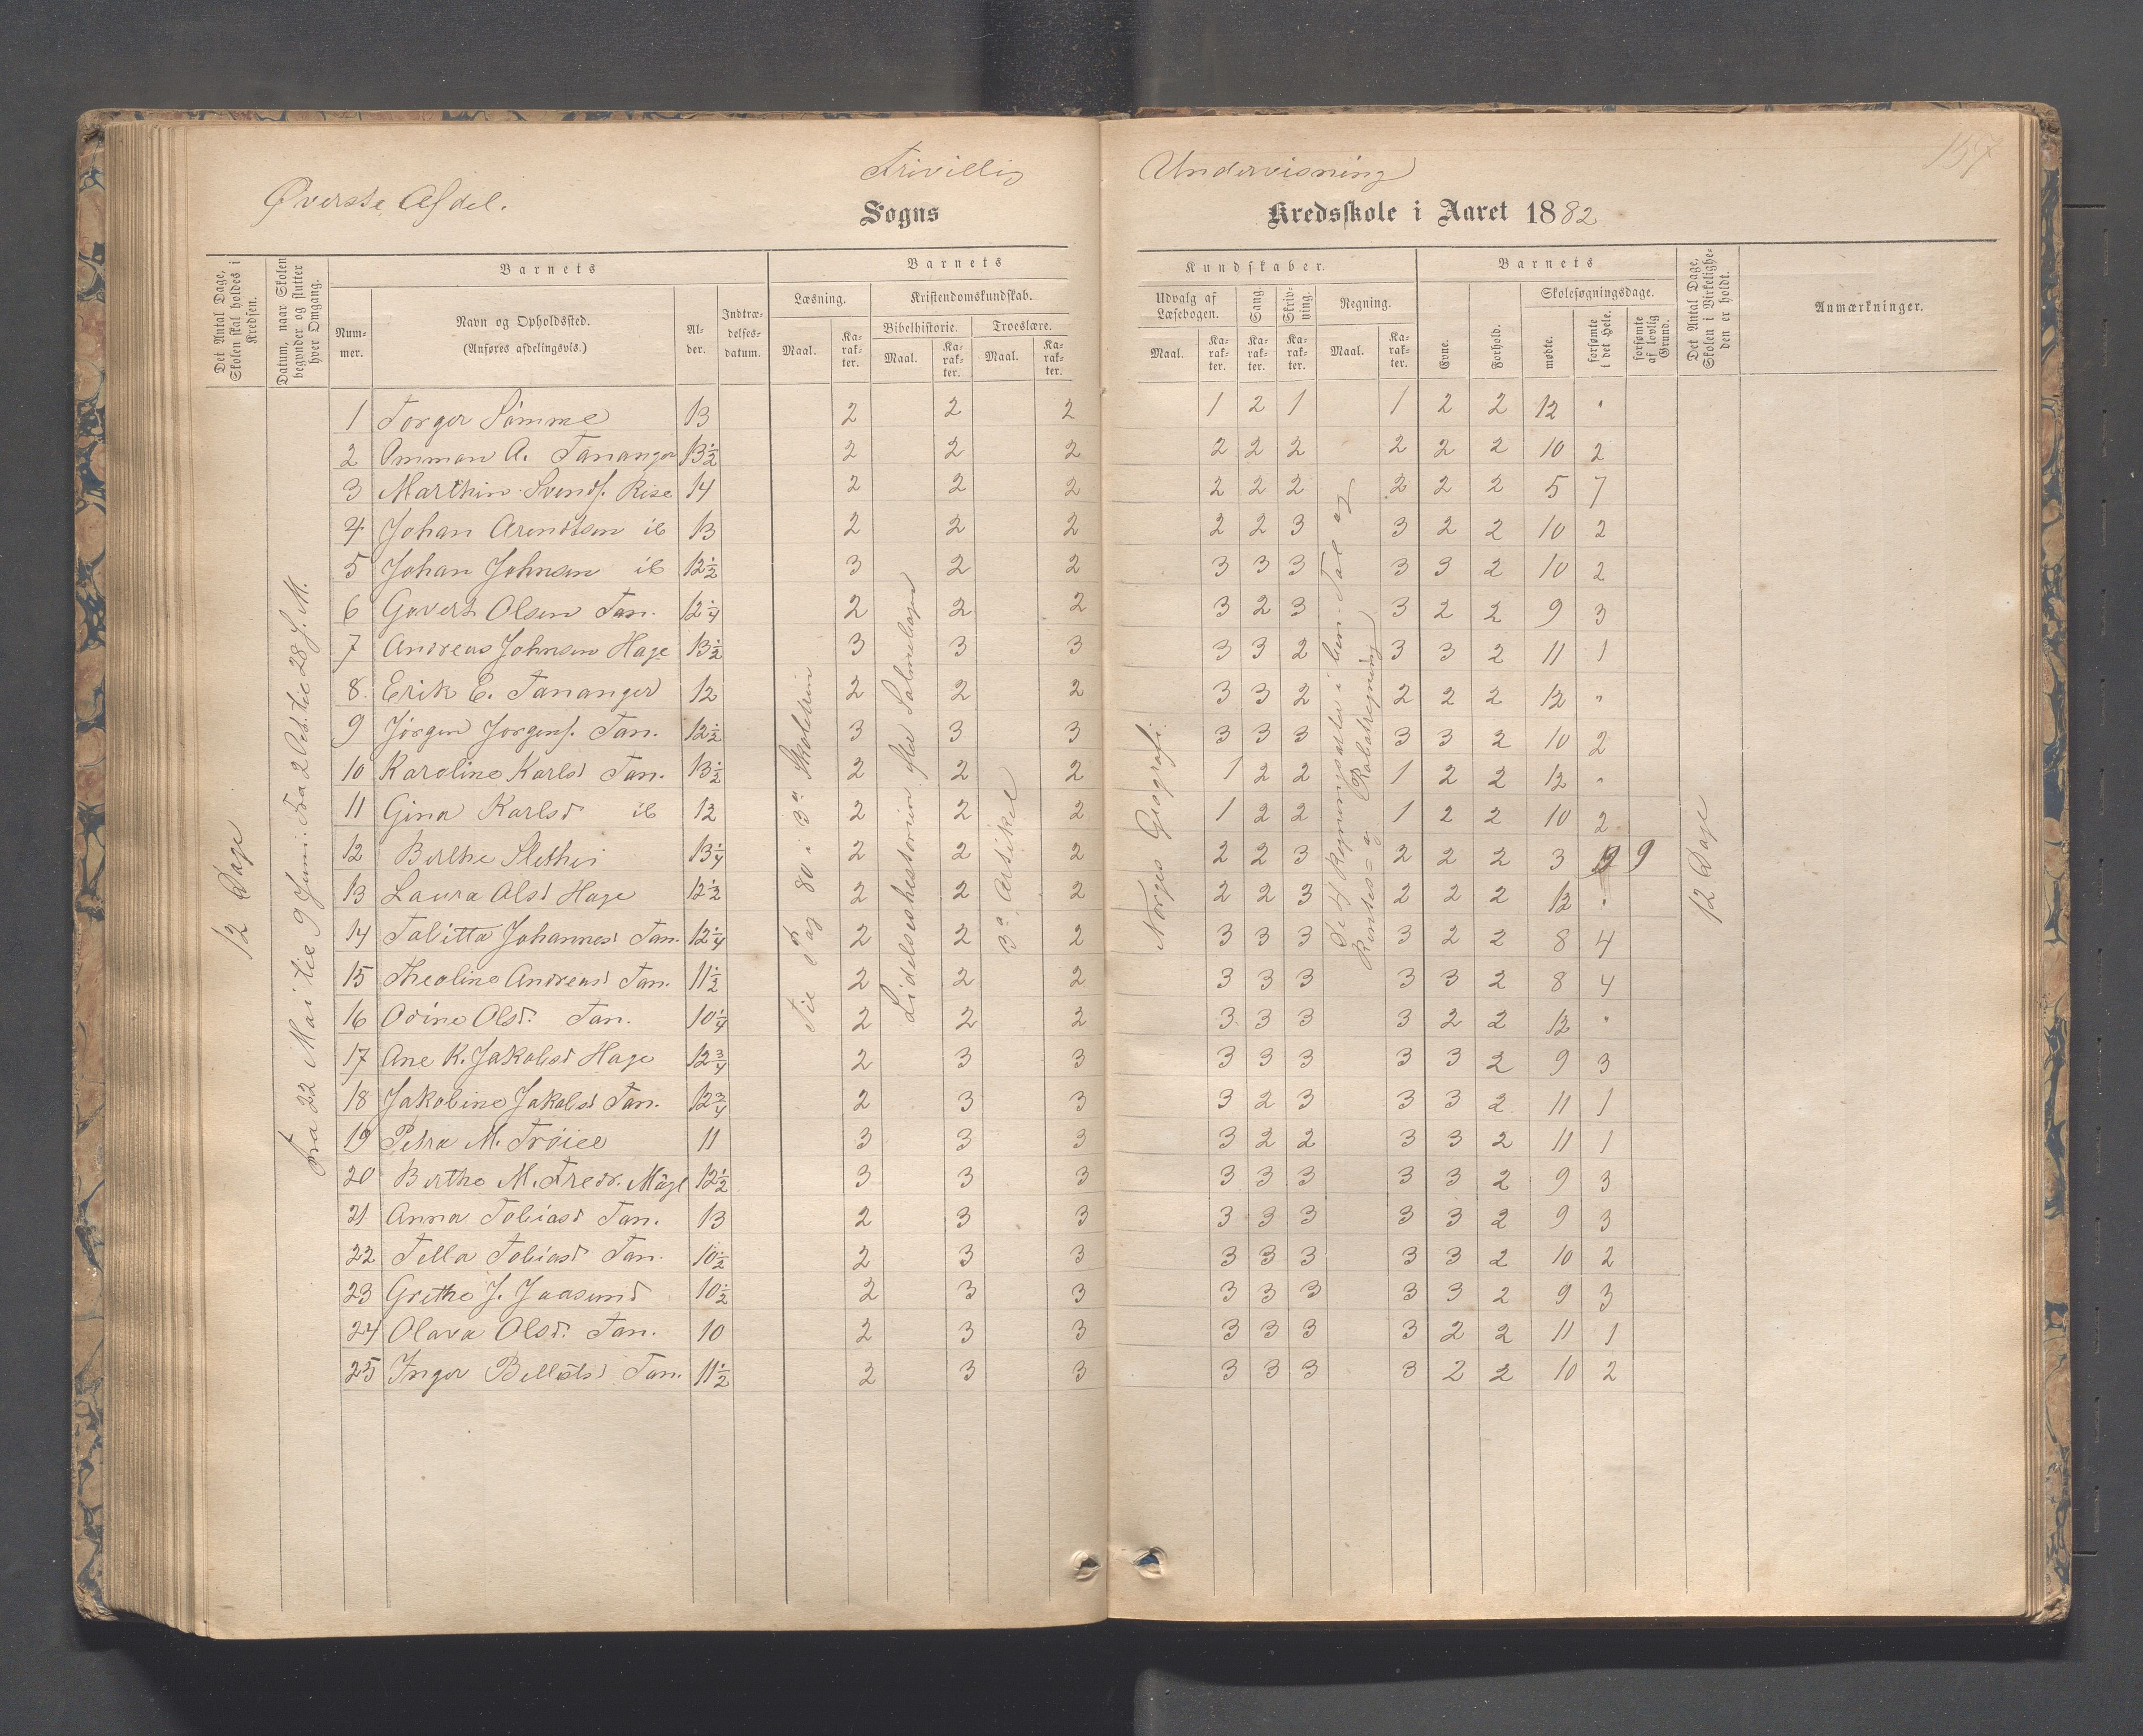 157
Frivillig Undervisning
Øverste Afdel.
Sogns Kredsskole i Aaret 1882
Det Antal Dage, Skolen skal holdes i Kredsen.
Datum, naar Skolen begynder og slutter hver Omgang.
Barnets
Num-mer.
Navn og Opholdssted.
(Anføres afdelingsvis.)
Al-der.
Indtræ-delses-datum.
Barnets
Læsning.
Maal.
Ka-rak-ter.
Kristendomskundskab.
Bibelhistorie.
Maal.
Ka-rak-ter.
Troeslære.
Maal.
Ka-rak-ter.
Kundskaber.
Udvalg af Læsebogen.
Maal.
Ka-rak-ter.
Sang.
Ka-rak-ter.
Skriv-ning.
Ka-rak-ter.
Regning.
Maal.
Ka-rak-ter.
Barnets
Evne.
Forhold.
Skolesøgningsdage.
mødte.
forsømte i det Hele.
forsømte af lovlig Grund.
Det Antal Dage, Skolen i Virkelighe-den er holdt.
Anmærkninger.
12 Dage
Fra 22 Mai til 9 Juni. Fra 2 Oct. til 28 s. M.
Til Pag 80 i 3a Skoletrin
Lidelseshistorien efter Salmebogen
3a Artikel
Norges Geografi
De 4 Regningsarter i ben. Tal og
Rentes= og Rabatregning
12 Dage
1 Torger Sømme 13 2 2 2 1 2 1 1 2 2 12 "
2 Ommon A. Tananger 13 1/2 2 2 2 2 2 2 2 2 2 10 2
3 Marthin Svends. Risa 14 2 2 2 2 2 2 2 2 2 5 7
4 Johan Arentsen ib 13 2 2 2 2 2 3 3 2 2 10 2
5 Johan Johnsen ib 12 1/2 3 2 2 3 3 3 3 3 2 10 2
6 Govert Olsen Tan. 12 1/4 2 2 2 3 2 3 3 2 2 9 3
7 Andreas Johnsen Hage 13 1/2 3 3 3 3 3 2 3 3 2 11 1
8 Erik E. Tananger 12 2 2 2 3 3 2 2 2 2 12 "
9 Jørgen Jørgens. Tan. 12 1/2 3 3 3 3 3 3 3 3 2 10 2
10 Karoline Karlsd Tan. 13 1/2 2 2 2 1 2 2 1 2 2 12 "
11 Gina Karlsd ib 12 2 2 2 1 2 2 1 2 2 10 2
12 Berthe Slethei 13 1/4 2 2 2 2 2 3 2 2 2 3 9 9
13 Laura Olsd Hage 12 1/2 2 2 2 2 2 3 2 2 2 12 "
14 Tabitta Johannesd Tan. 12 1/4 2 2 2 3 3 3 3 2 2 8 4
15 Theoline Andreasd Tan. 11 1/2 2 2 2 3 3 3 3 3 2 8 4
16 Odine Olsd. Tan. 10 1/4 2 2 2 3 3 3 3 2 2 12 "
17 Ane K. Jakobsd Hage 12 3/4 2 3 3 3 3 3 3 3 2 9 3
18 Jakobine Jakobsd Tan. 12 3/4 2 3 3 3 2 3 3 3 2 11 1
19 Petra M. Trøiel 11 3 3 3 3 2 2 3 3 2 11 1
20 Berthe M. Fredr. Mäge 12 1/2 3 3 3 3 3 3 3 3 2 9 3
21 Anna Tobiasd Tan. 13 2 3 3 3 3 3 3 3 2 9 3
22 Tella Tobiasd Tan. 10 1/2 2 3 3 3 3 3 3 3 2 10 2
23 Grethe J. Jaasund 10 1/2 2 3 3 3 3 3 3 3 2 9 3
24 Olava Olsd. Tan. 10 2 3 3 3 3 3 3 2 2 11 1
25 Inger Tan. 11 1/2 2 3 3 3 3 3 3 2 2 10 2